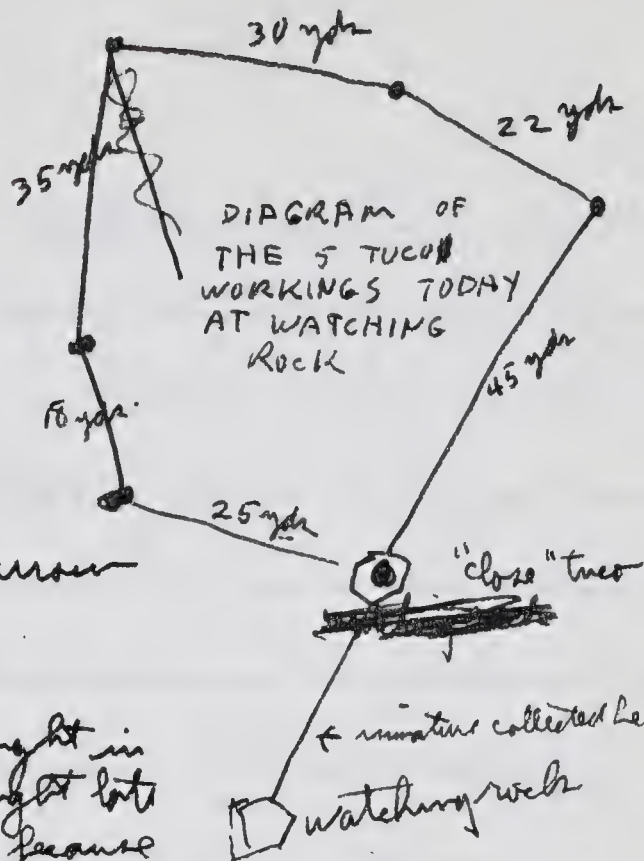 30 yds
22 yds
35 yds
DIAGRAM OF
THE 5 TUCO
WORKINGS TODAY
AT WATCHING
ROCK
45 yds
18 yds.
25 yds
"close" tuco
← collected
watching rock
ght in
ght lots
because